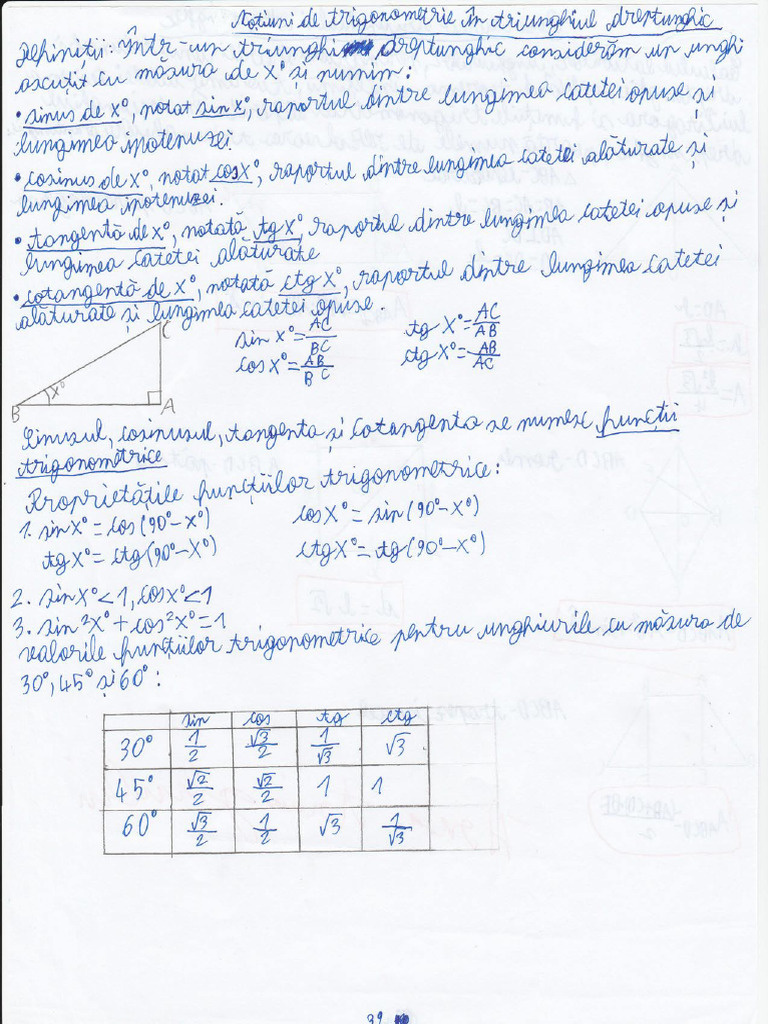 Noțiuni de trigonometrie în triunghiul dreptunghic
Definiții: Într-un triunghi dreptunghic considerăm un unghi
ascuțit cu măsura de x° și numim:
• sinus de x°, notat sin x°, raportul dintre lungimea catetei opuse și
lungimea ipotenuzei
• cosinus de x°, notat cos x°, raportul dintre lungimea catetei alăturate și
lungimea ipotenuzei.
• tangentă de x°, notată tg x°, raportul dintre lungimea catetei opuse și
lungimea catetei alăturate
• cotangentă de x°, notată ctg x°, raportul dintre lungimea catetei
alăturate și lungimea catetei opuse.
sin x° = AC/BC tg x° = AC/AB
cos x° = AB/BC ctg x° = AB/AC
C
x°
B A
Sinusul, cosinusul, tangenta și cotangenta se numesc funcții
trigonometrice
Proprietățile funcțiilor trigonometrice:
1. sin x° = cos(90°-x°) cos x° = sin(90°-x°)
tg x° = ctg(90°-x°) ctg x° = tg(90°-x°)
2. sin x° < 1, cos x° < 1
3. sin²x° + cos²x° = 1
Valorile funcțiilor trigonometrice pentru unghiurile cu măsura de
30°, 45° și 60°:
sin cos tg ctg
30° 1/2 √3/2 1/√3 √3
45° √2/2 √2/2 1 1
60° √3/2 1/2 √3 1/√3
39